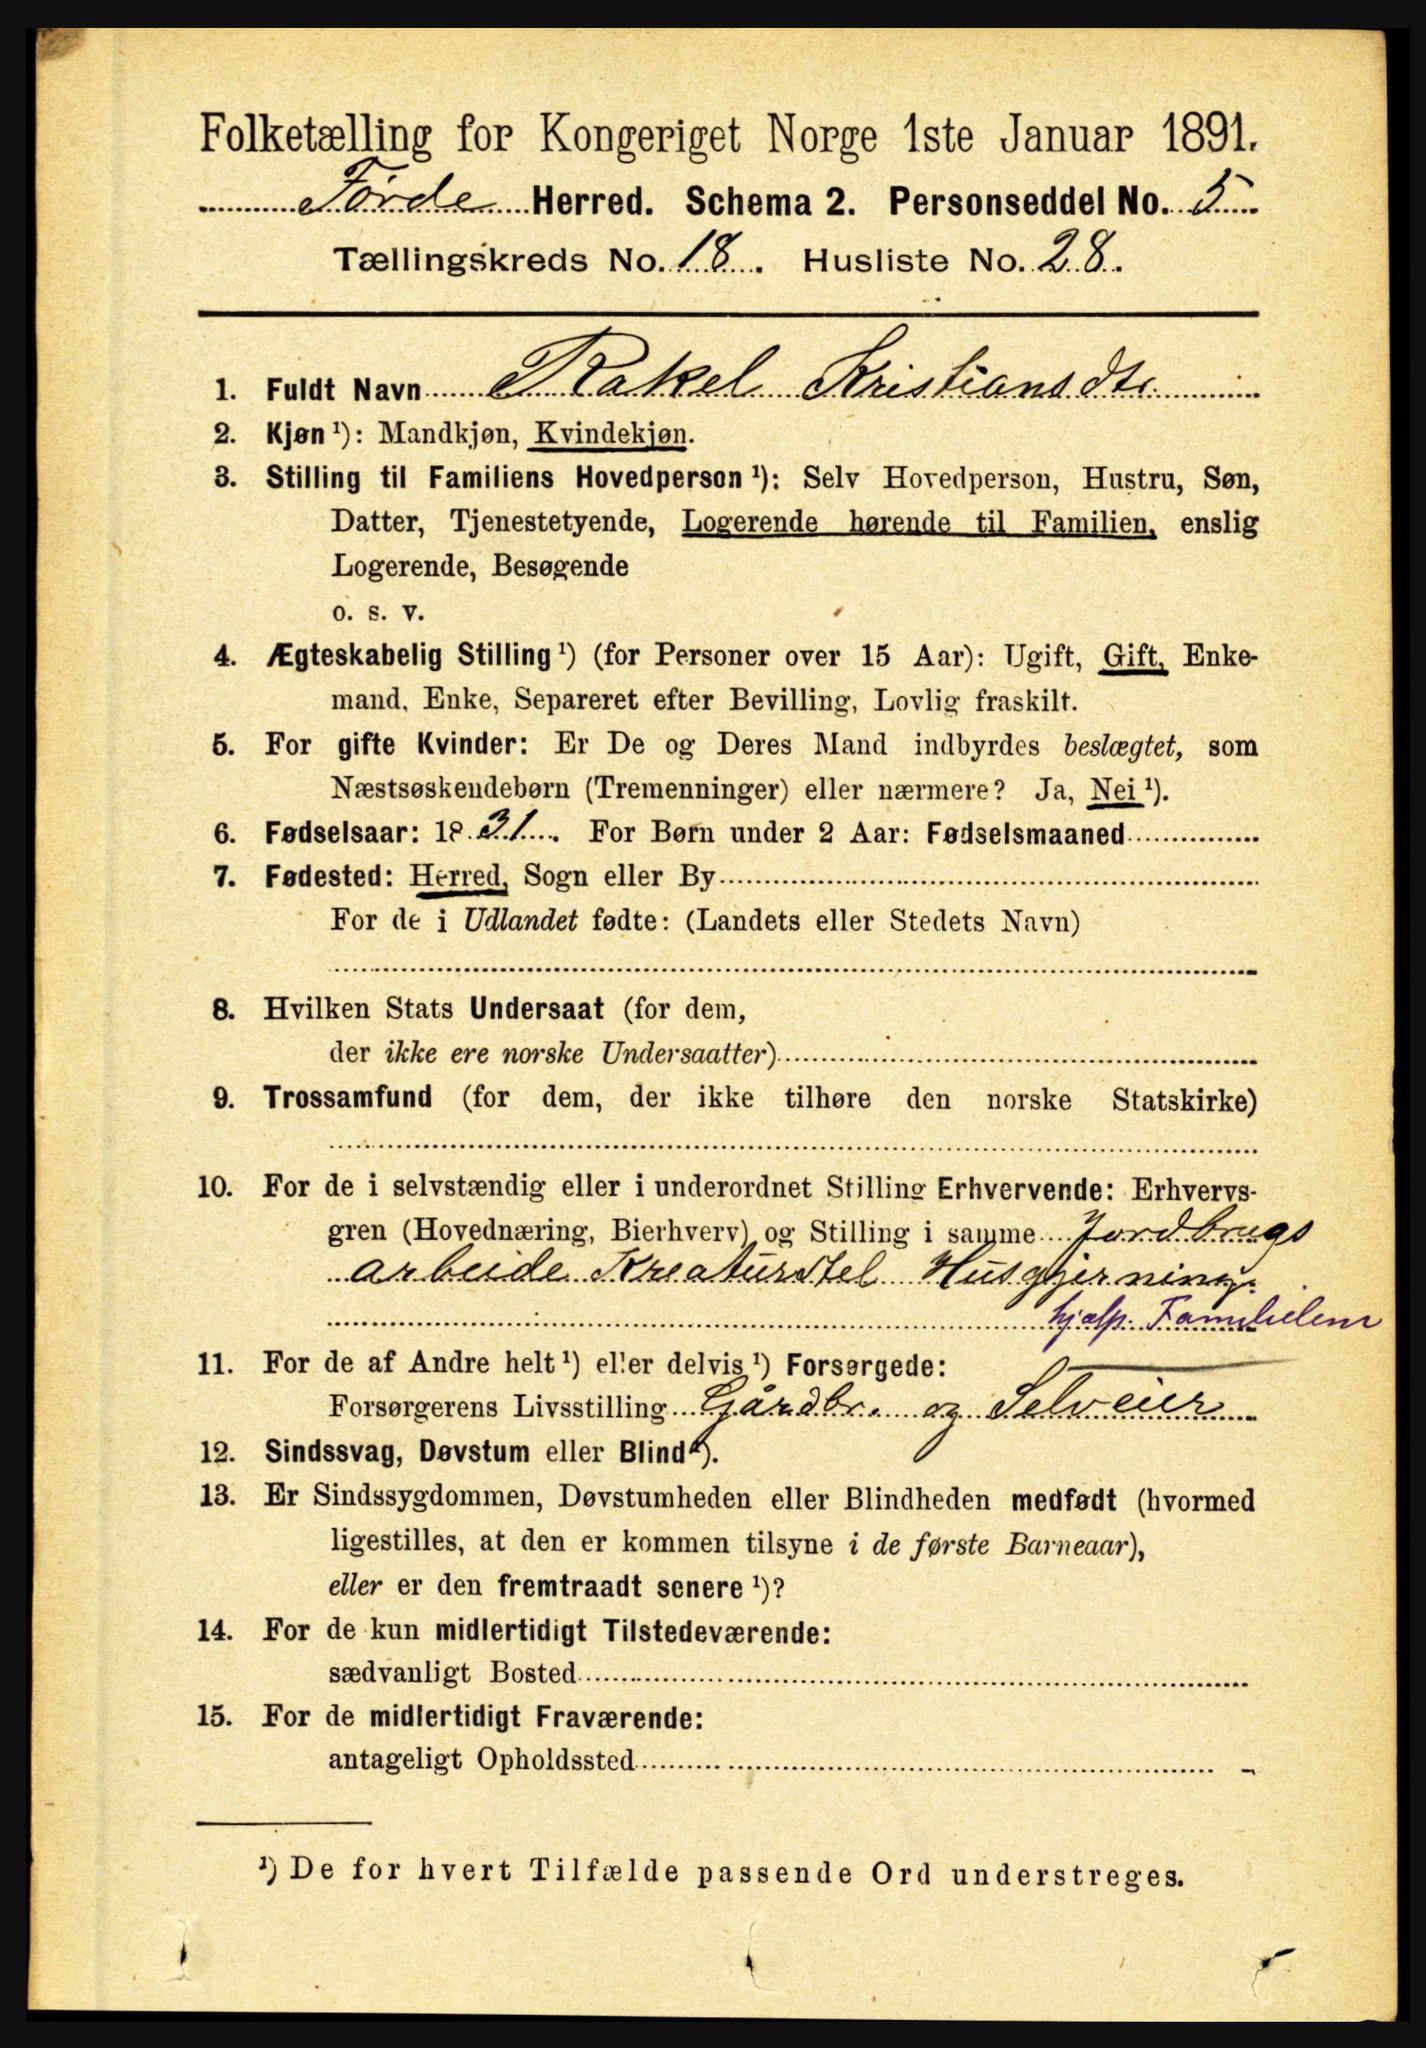 Folketælling for Kongeriget Norge 1ste Januar 1891.
Førde Herred. Schema 2. Personseddel No. 5
Tællingskreds No. 18. Husliste No. 28.
1. Fuldt Navn Rakel Kristiansdtr.
2. Kjøn ¹): Mandkjøn, Kvindekjøn.
3. Stilling til Familiens Hovedperson ¹): Selv Hovedperson, Hustru, Søn,
Datter, Tjenestetyende, Logerende hørende til Familien, enslig
Logerende, Besøgende
o. s. v.
4. Ægteskabelig Stilling ¹) (for Personer over 15 Aar): Ugift, Gift, Enke-
mand, Enke, Separeret efter Bevilling, Lovlig fraskilt.
5. For gifte Kvinder: Er De og Deres Mand indbyrdes beslægtet, som
Næstsøskendebørn (Tremenninger) eller nærmere? Ja, Nei ¹).
6. Fødselsaar: 1831. For Børn under 2 Aar: Fødselsmaaned
7. Fødested: Herred, Sogn eller By
For de i Udlandet fødte: (Landets eller Stedets Navn)
8. Hvilken Stats Undersaat (for dem,
der ikke ere norske Undersaatter)
9. Trossamfund (for dem, der ikke tilhøre den norske Statskirke)
10. For de i selvstændig eller i underordnet Stilling Erhvervende: Erhvervs-
gren (Hovednæring, Bierhverv) og Stilling i samme Jordbrugs
arbeide Kreaturstel Husgjerning.
hjælp. Familielem
11. For de af Andre helt ¹) eller delvis ¹) Forsørgede:
Forsørgerens Livsstilling Gårdbr. og Selveier
12. Sindssvag, Døvstum eller Blind ¹).
13. Er Sindssygdommen, Døvstumheden eller Blindheden medfødt (hvormed
ligestilles, at den er kommen tilsyne i de første Barneaar),
eller er den fremtraadt senere ¹)?
14. For de kun midlertidigt Tilstedeværende:
sædvanligt Bosted
15. For de midlertidigt Fraværende:
antageligt Opholdssted
¹) De for hvert Tilfælde passende Ord understreges.